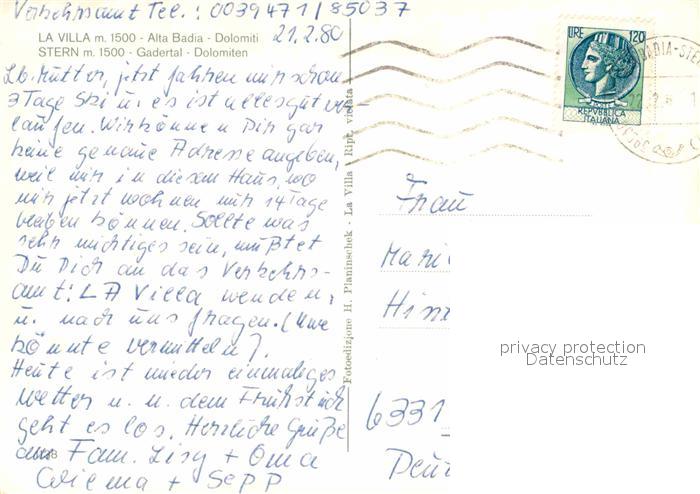 Verkehrsamt Tel.: 0039471/85037
LA VILLA m. 1500 - Alta Badia - Dolomiti
STERN m. 1500 - Gadertal - Dolomiten
21.2.80
Lb. Mutter, jetzt fahren wir schon
3 Tage Ski u. es ist alles gut ver
laufen. Wir können Dir gar
keine genaue Adresse angeben,
weil wir in diesem Haus, wo
wir jetzt wohnen nur 14 Tage
bleiben können. Sollte was
sehr wichtiges sein, müßtet
Du Dich an das Verkehrs-
amt: LA Villa wenden,
u. nach uns fragen. (
könnte vermitteln).
Heute ist wieder einmaliges
Wetter u. n. dem Frühstück
geht es los. Herzliche Grüße
Fam. Lisy + Oma
+ Sepp
Fotoedizione H. Planinschek - La Villa - Ripr. vietata
LIRE 120
REPVBBLICA
ITALIANA
BADIA-STE
Frau
Mari
Him
6331
Deu
privacy protection
Datenschutz